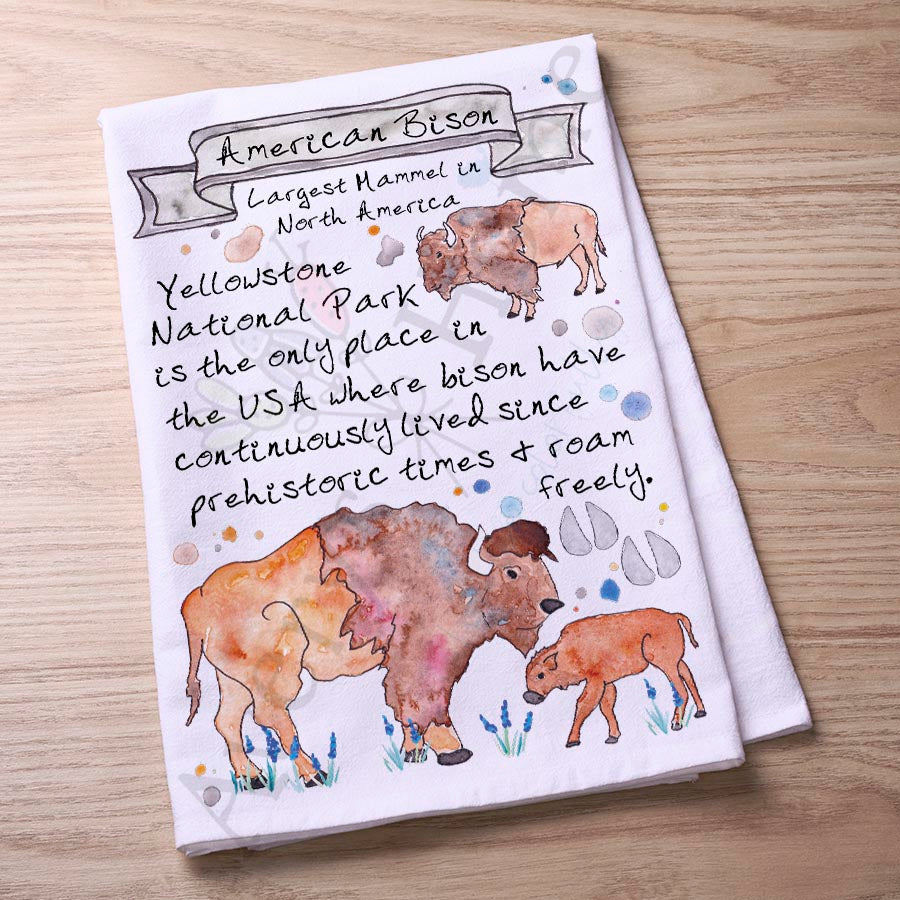 American Bison
Largest Mammel in
North America
Yellowstone
National Park
is the only place in
the USA where bison have
continuously lived since
prehistoric times & roam
freely.